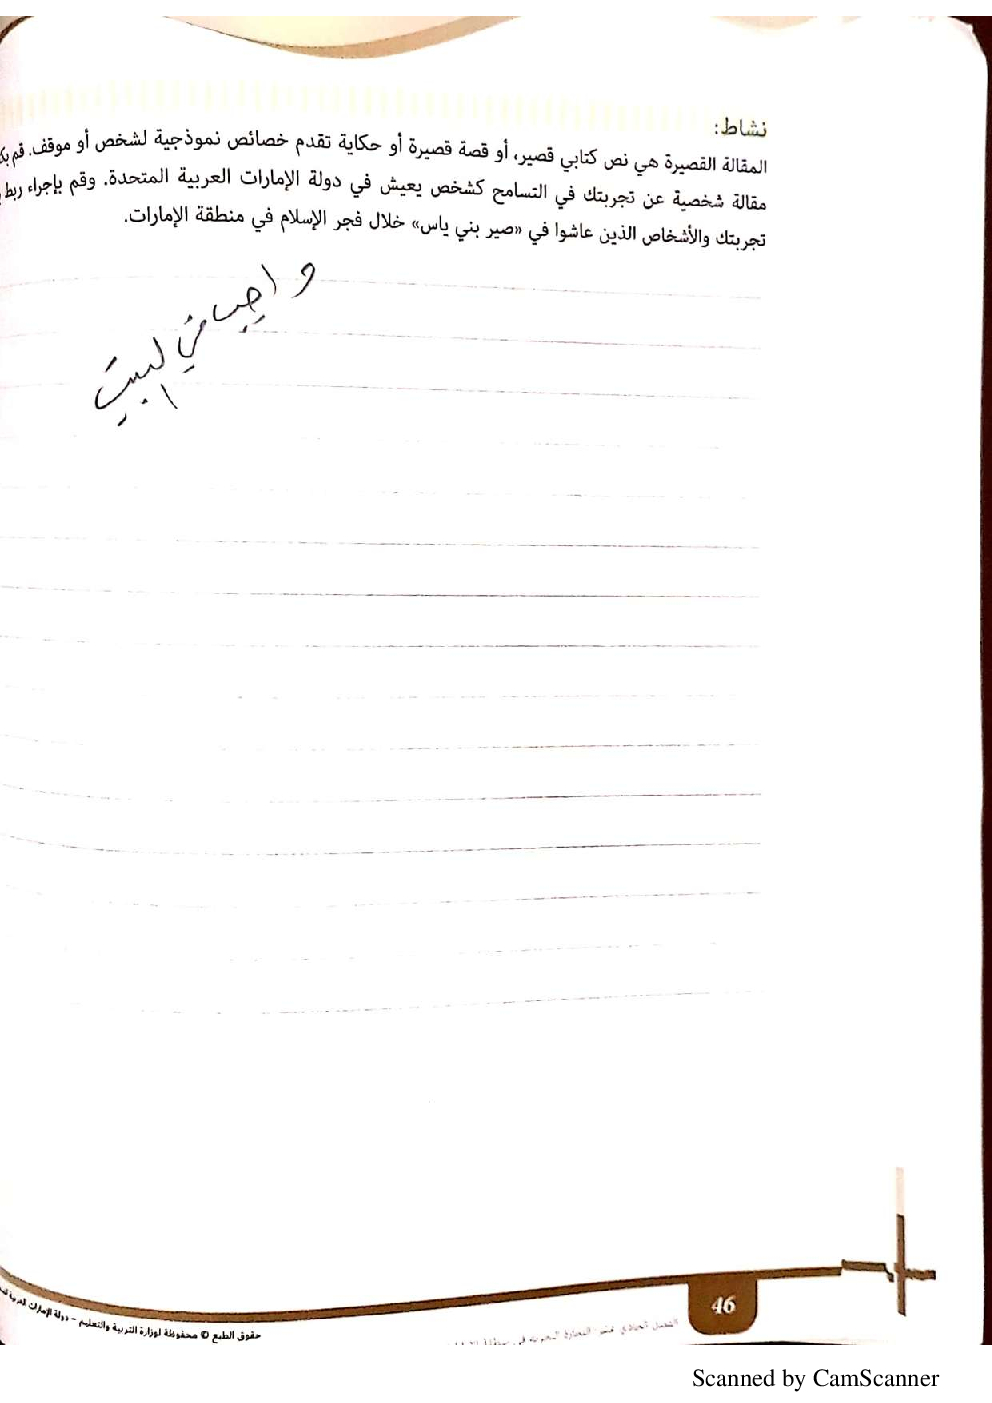 نشاط:
المقالة القصيرة هي نص كتابي قصير، أو قصة قصيرة أو حكاية تقدم خصائص نموذجية لشخص أو موقف. قم
مقالة شخصية عن تجربتك في التسامح كشخص يعيش في دولة الإمارات العربية المتحدة. وقم بإجراء ربط
تجربتك والأشخاص الذين عاشوا في «صير بني ياس» خلال فجر الإسلام في منطقة الإمارات.
واجب في البيت
46
حقوق الطبع © محفوظة لوزارة التربية والتعليم – دولة الإمارات العربية
Scanned by CamScanner